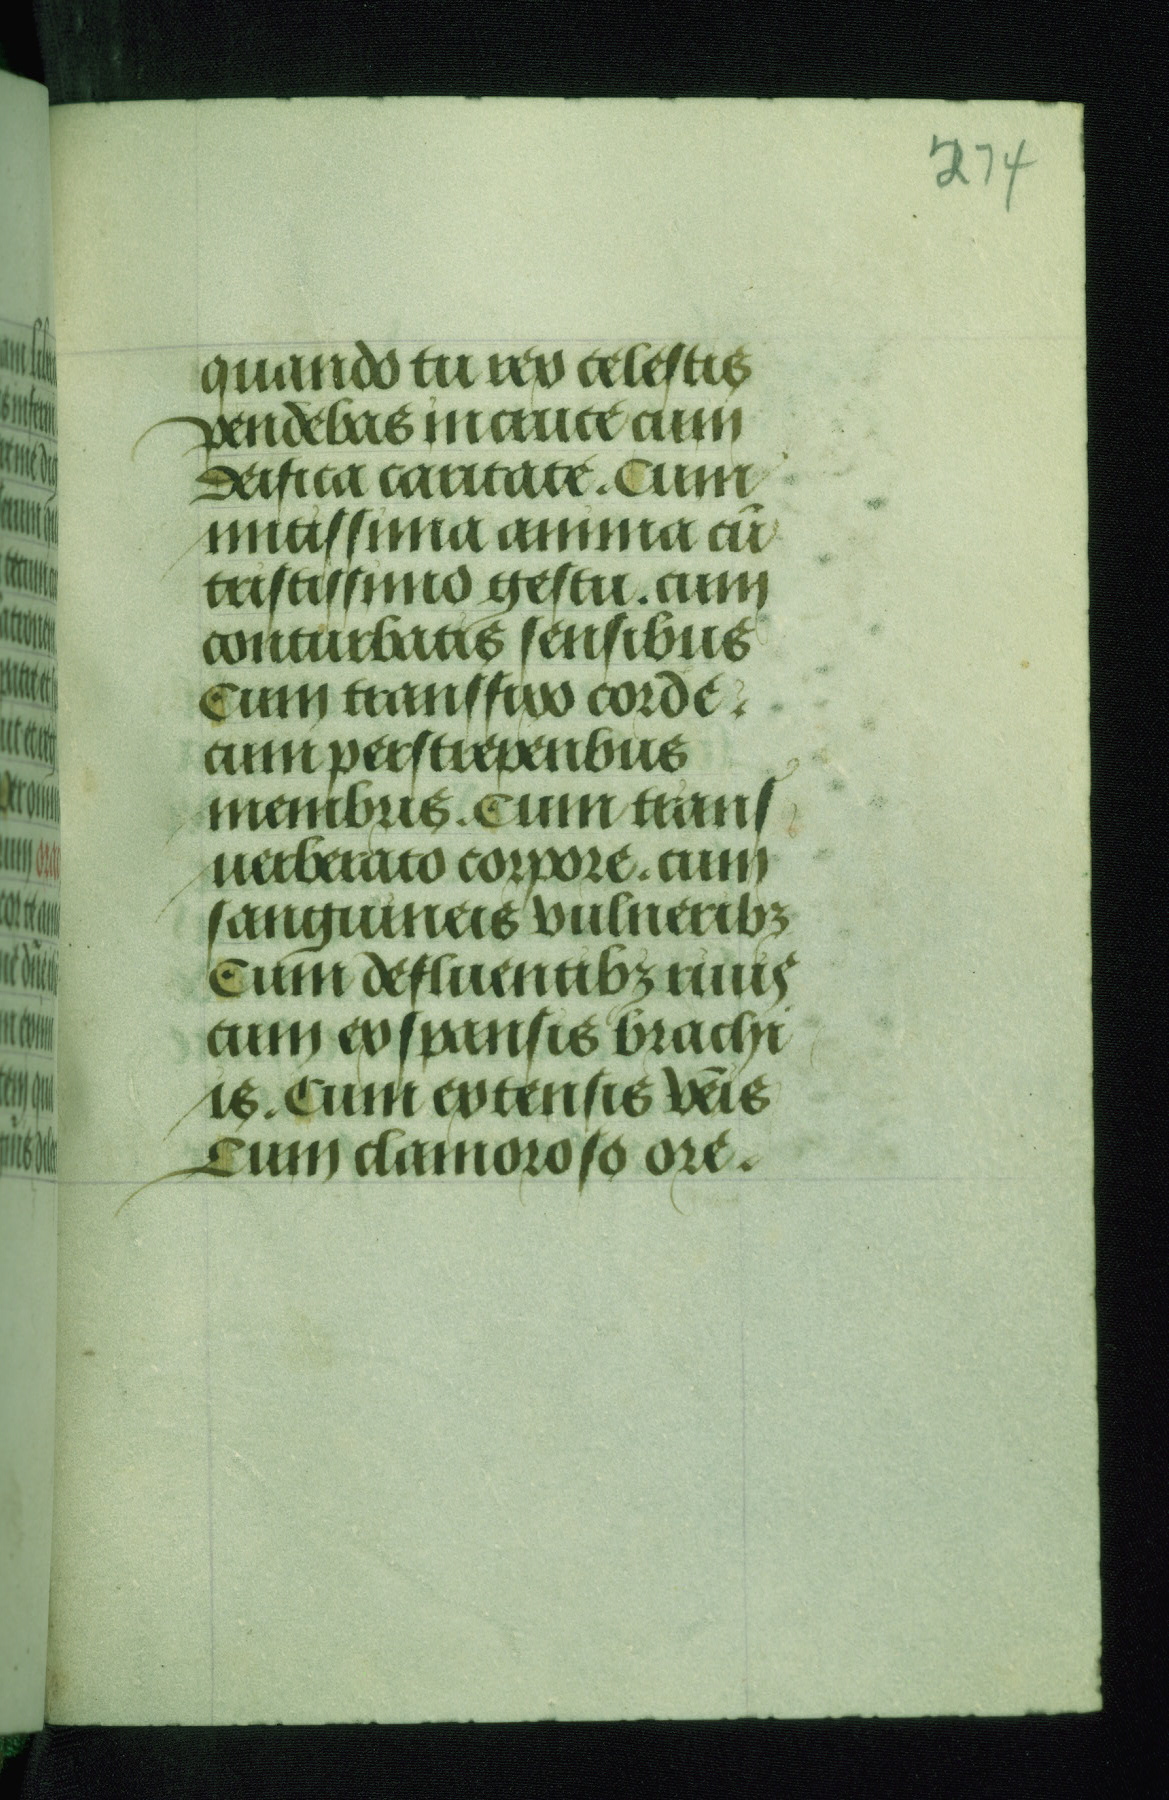 274
quando tu rex celestis
pendebas in cruce cum
deifica caritate. Cum
mitissima anima cū
tristissimo gestu. cum
conturbatis sensibus
Cum transfixo corde.
cum perstrepentibus
membris. Cum trans
uerberato corpore. cum
sanguineis vulneribꝫ
Cum defluentibꝫ riuis
cum expansis brachi
is. Cum extensis vēis
Cum clamoroso ore.